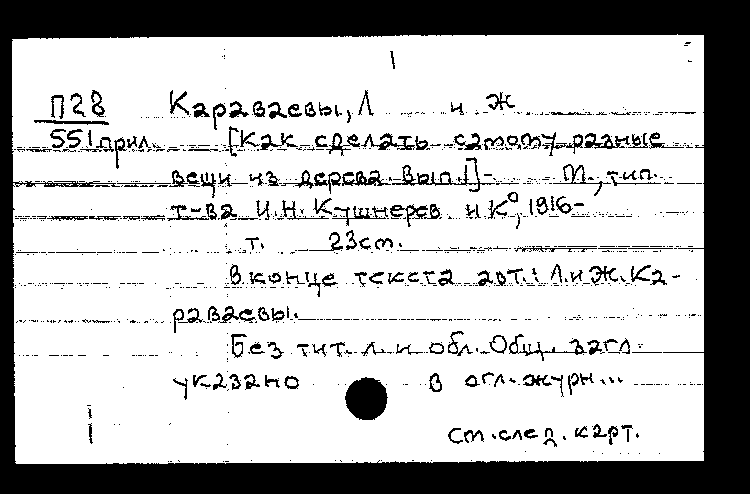 П28 Караваевы, Л и Ж
551 прил. [Как сделать самому разные
вещи из дерева. Вып.1]- М., тип.
т-ва И.Н. Кушнерев и К°, 1916-
т. 23см.
В конце текста авт.: Л. и Ж. Ка-
раваевы.
Без тит. л. и обл. Общ. загл.
указано в огл. журн...
См. след. карт.